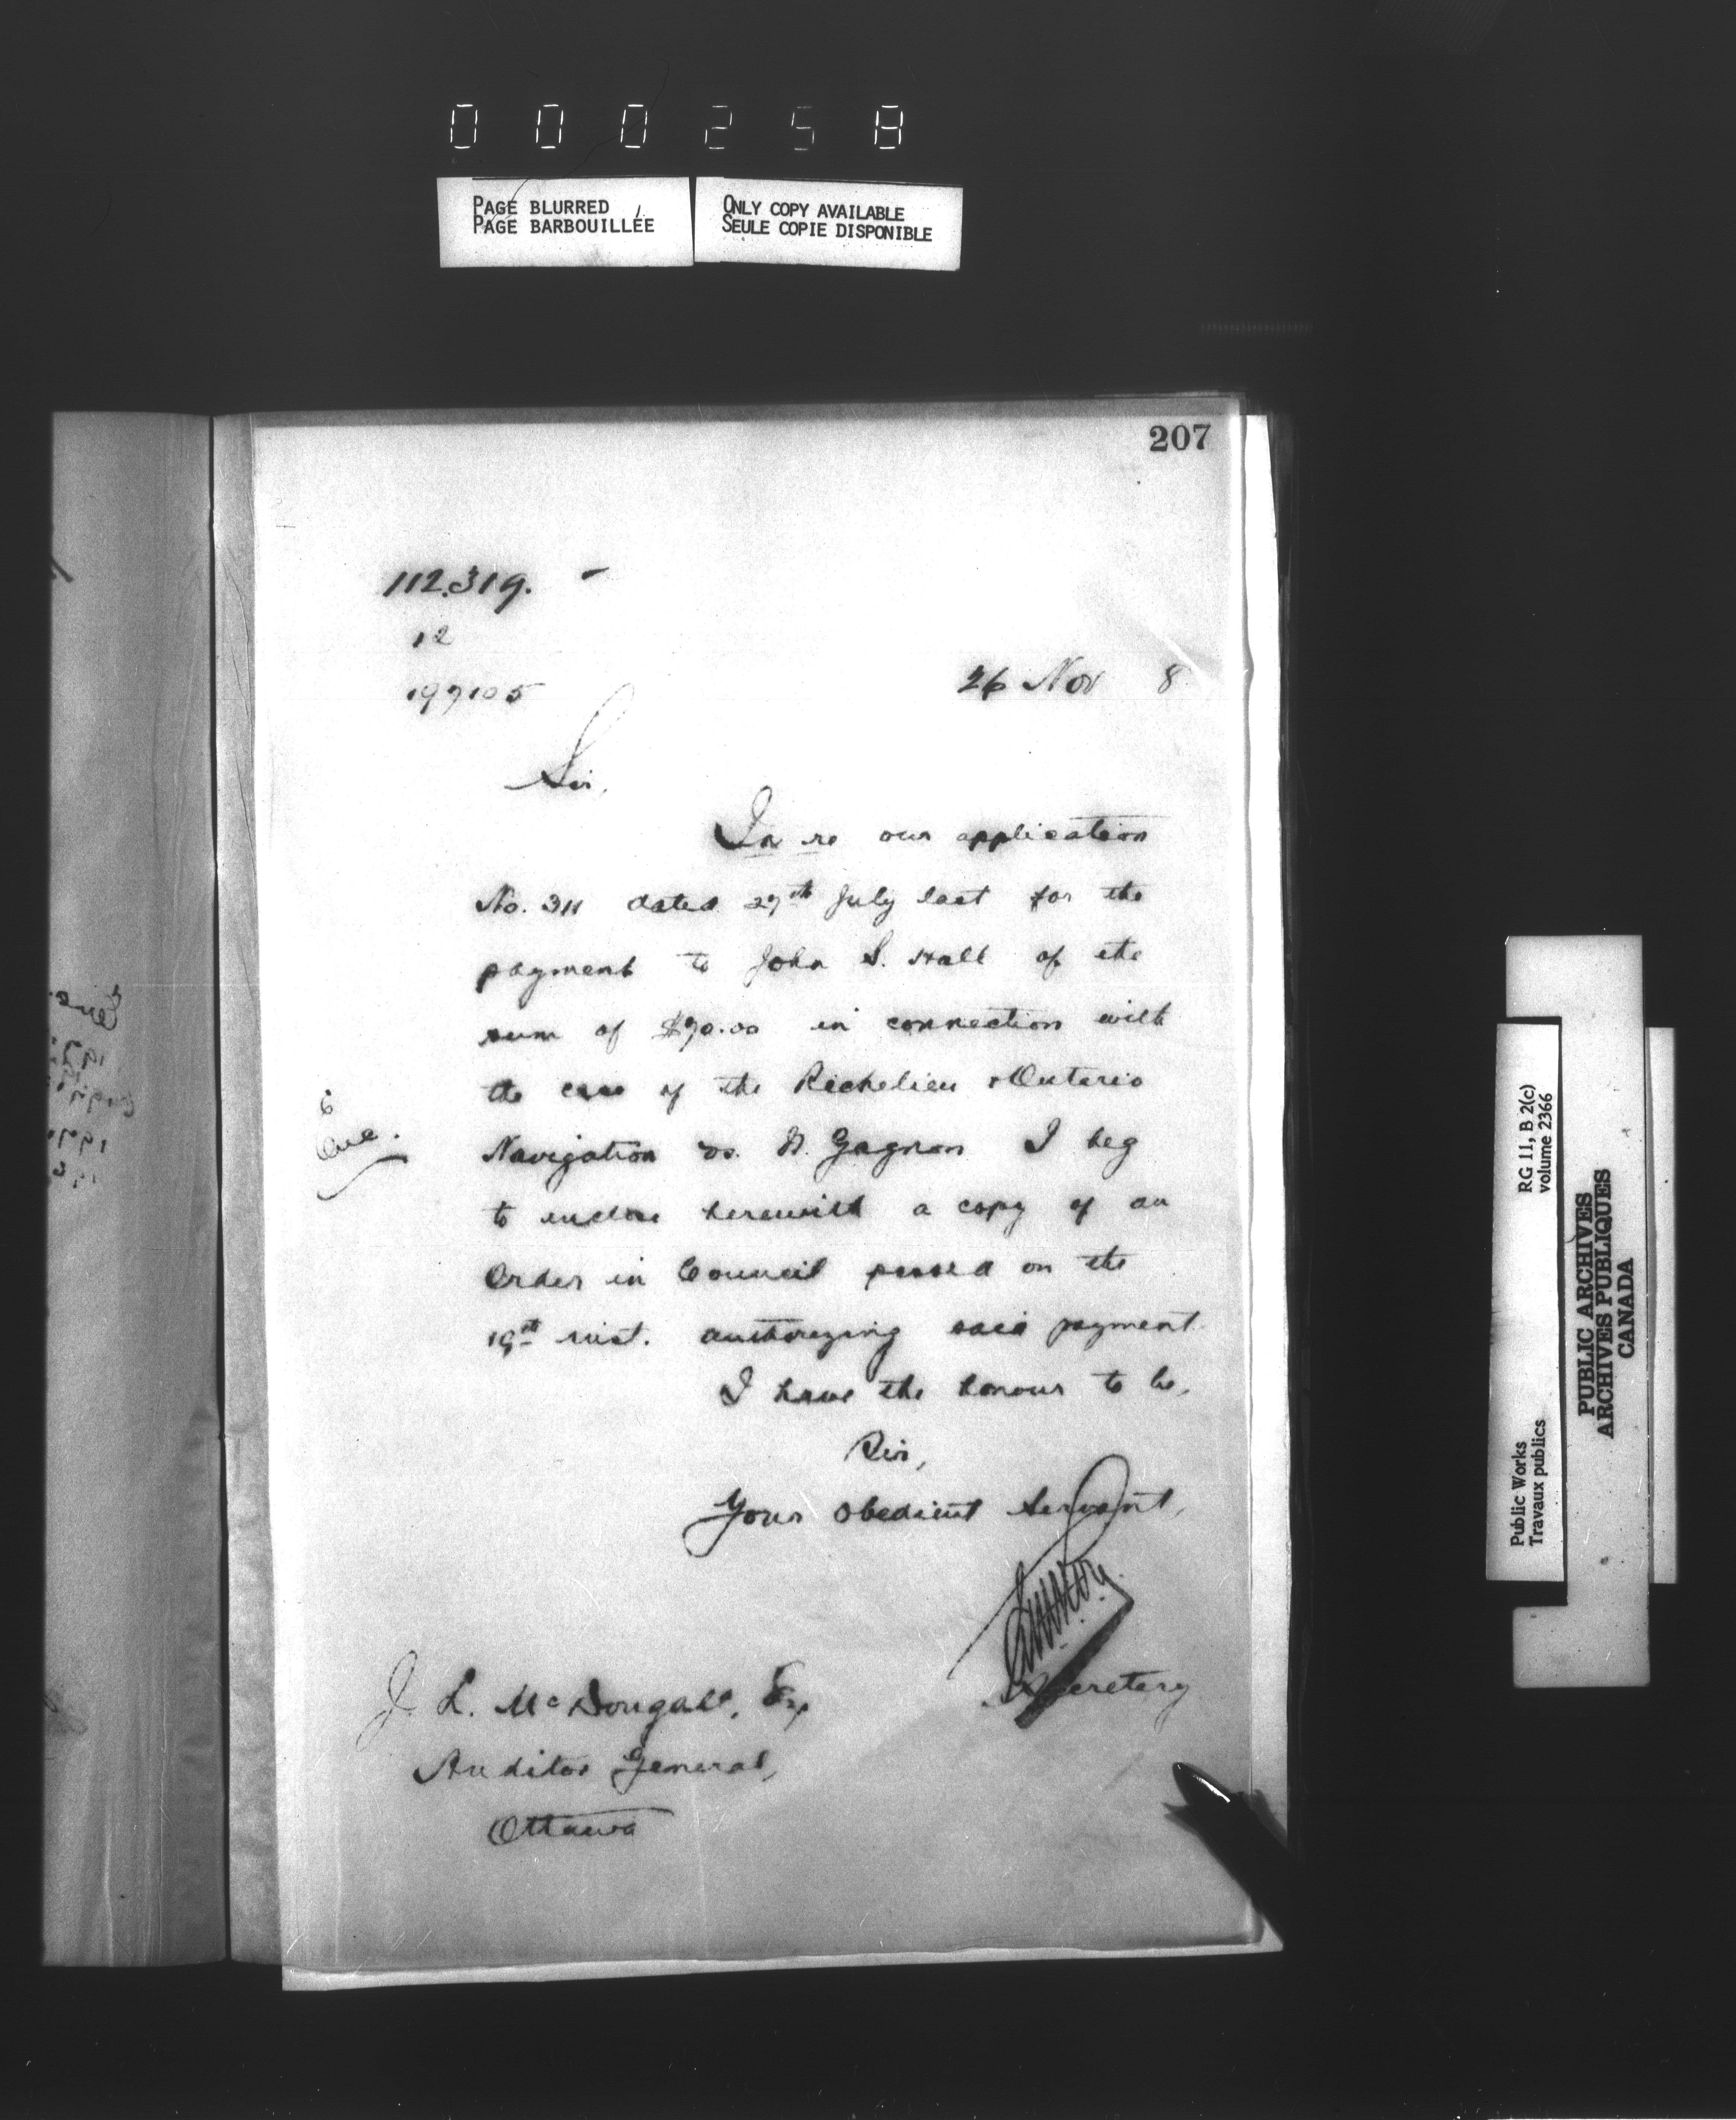 000258
PAGE BLURRED
PAGE BARBOUILLÉE
ONLY COPY AVAILABLE
SEULE COPIE DISPONIBLE
207
112.319. -
12
197105
26 Nov 8
Sir,
In re our application
No. 311 dated 27th July last for the
payment to John S. Hall of the
sum of $70.00 in connection with
the case of the Richelieu & Ontario
Navigation vs. H. Gagnon I beg
to enclose herewith a copy of an
Order in Council passed on the
19th inst. authorizing said payment.
I have the honour to be,
Sir,
Your obedient Servant,
Secretary
J. L. McDougall, Esq
Auditor General,
Ottawa
RG 11, B 2(c)
volume 2366
Public Works
Travaux publics
PUBLIC ARCHIVES
ARCHIVES PUBLIQUES
CANADA